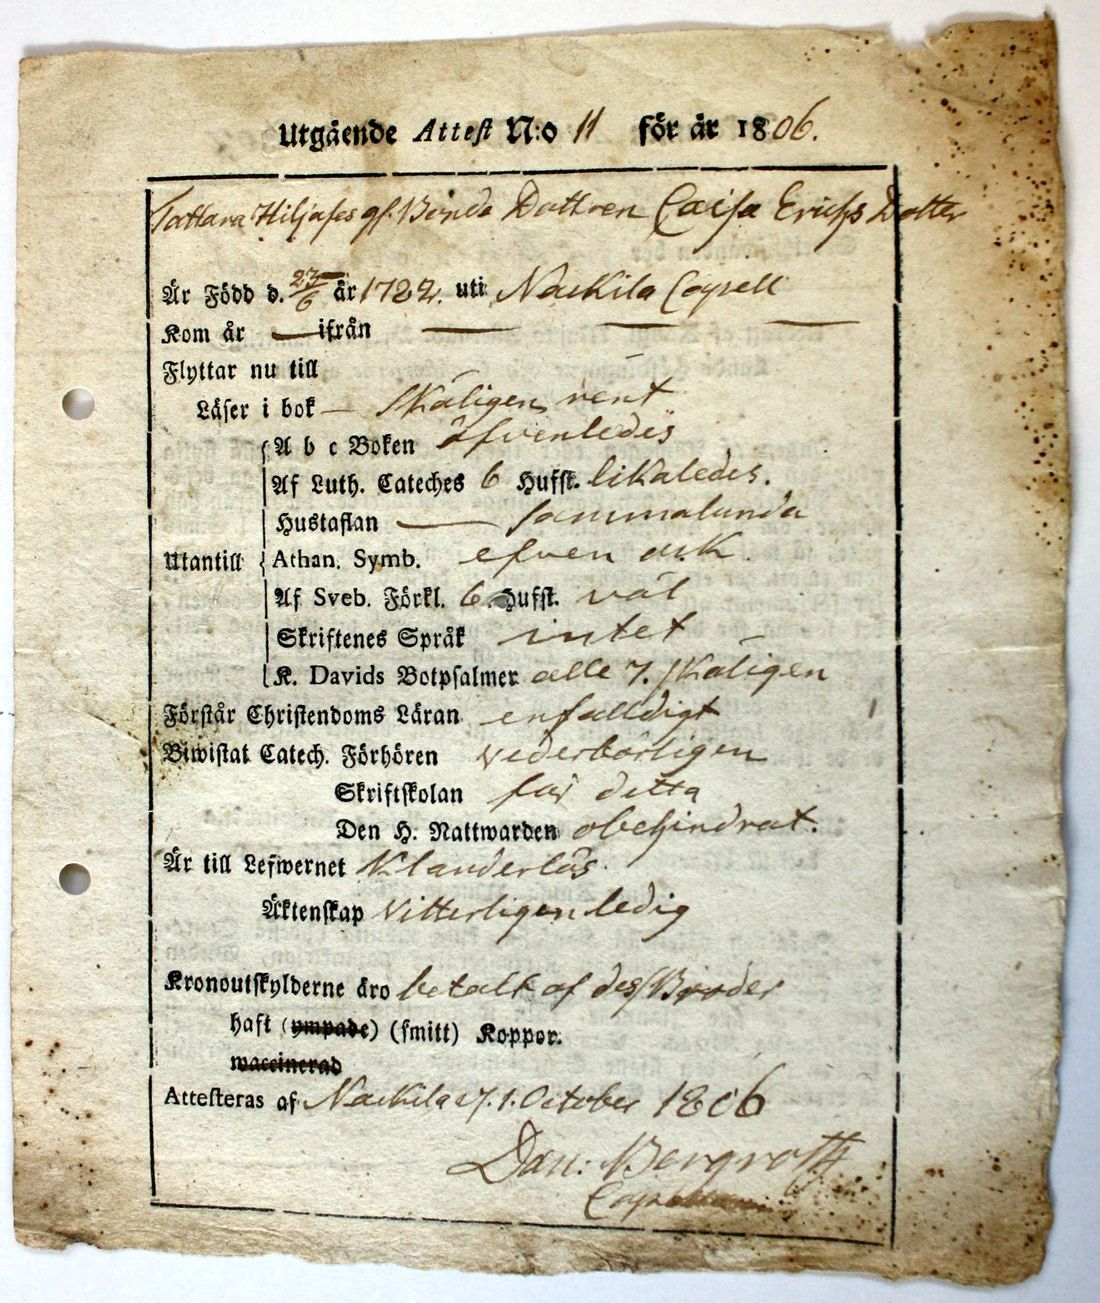 Utgående Attest N:o 11 för år 1806.
Tattara Hiljases gf. Bonde Dottren Caisa Erichs Dotter
Är Född d. 27/6 år 1782. uti Nackila Capell
Kom år — ifrån — — —
Flyttar nu till
Läser i bok — skäligen rent
A b c Boken äfvenledes
Af Luth. Cateches 6 Hufst. likaledes.
Hustaflan — sammalunda
Utantill Athan. Symb. efven ock
Af Sveb. Förkl. 6 Hufst. väl
Skriftenes Språk intet
K. Davids Botpsalmer alle 7. skäligen
Förstår Christendoms Läran enfalldigt
Biwistat Catech. Förhören vederbörligen
Skriftskolan för detta
Den H. Nattwarden obehindrat.
Är till Lefwernet Klanderlös
Äktenskap vitterligen ledig
Kronoutskylderne äro betalt af des Broder
haft (ympade) (smitt) Koppor.
waccinerad
Attesteras af Nackila d. 1. October 1806
Dan: Bergroth